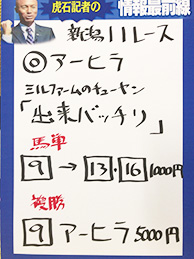 虎石記者の
情報最前線
新潟11レース
◎アーヒラ
ミルファームのチューヤン
「出来バッチリ」
馬単
9→13・16 1000円
複勝
9 アーヒラ 5000円